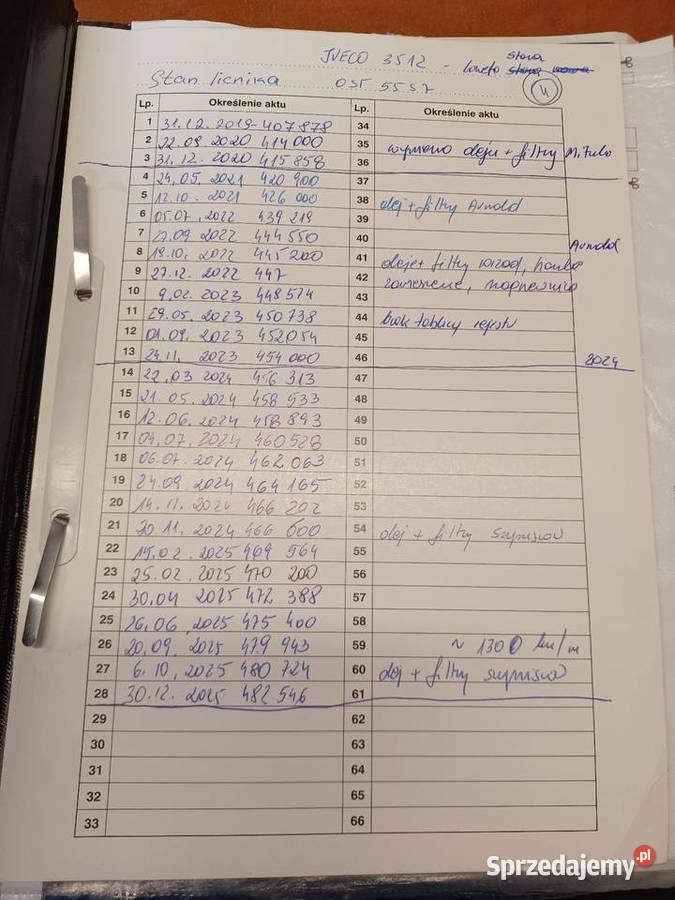 IVECO 3512 - laweta stara
Stan licznika OST 5557 4
Lp. Określenie aktu Lp. Określenie aktu
1 31.12.2019 407 878 34
2 22.09 2020 414 000 35 wymiana oleju + filtry M.
3 31.12.2020 415 858 36
4 24.05.2021 420 900 37
5 12.10.2021 426 000 38 olej + filtry Arnold
6 05.07.2022 439 219 39
7 27.09 2022 444 550 40 Arnold
8 19.10.2022 445 200 41 oleje + filtry
9 27.12.2022 447 42
10 9.02.2023 448 574 43
11 29.05.2023 450 738 44 brak tablicy rejestr
12 01.09.2023 452 054 45
13 24.11.2023 454 000 46 2024
14 22.03 2024 456 313 47
15 21.05.2024 458 533 48
16 12.06.2024 458 893 49
17 04.07.2024 460 528 50
18 06.07.2024 462 063 51
19 24.09.2024 464 165 52
20 14.11.2024 466 202 53
21 20.11.2024 466 600 54 olej + filtry
22 15.02.2025 469 564 55
23 25.02.2025 470 200 56
24 30.04 2025 472 388 57
25 26.06.2025 475 400 58
26 20.09.2025 479 943 59 ~ 1300 km/m
27 6.10.2025 480 724 60 olej + filtry
28 30.12.2025 482 546 61
29 62
30 63
31 64
32 65
33 66
Sprzedajemy.pl